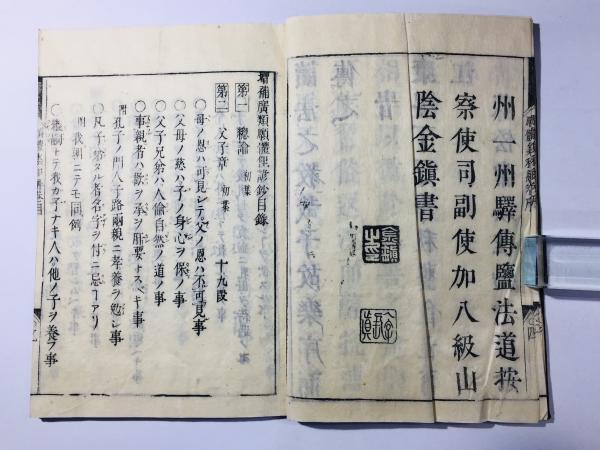 州一州驛傳鹽法道按
察使司副使加八級山
陰金鎮書
增補廣類願體俚諺鈔目錄
第一 總論 初葉
第二 父子章 初葉 十九段
○母ノ恩ハ可見シテ父ノ恩ハ不可見事
○父母ノ慈ハ子ノ身心ヲ保ノ事
○父子兄弟ハ人倫自然ノ道ノ事
○事親者ハ歡ヲ承ヲ肝要トスベキ事
附孔子ノ門人子路兩親ニ孝養ヲ勉シ事
○凡子弟タル者名字ヲ付ニ忌ヿアリ
附我朝ニテモ同例
テ我カ子ナキ人ハ他ノ子ヲ養フ事